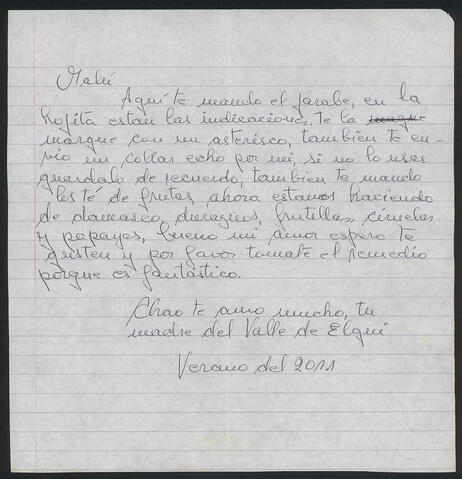 Malú
Aquí te mando el jarabe, en la
hojita estan las indicaciones, te la maque
marque con un asterisco, tambien te en-
vio un collar echo por mi, si no lo usas
guardalo de recuerdo, tambien te mando
les té de frutas, ahora estamos haciendo
de damasco, duraznos, frutillas, ciruelas
y papayas, bueno mi amor espero te
gusten y por favor tomate el remedio
porque es fantástico.
Chao te amo mucho, tu
madre del Valle de Elqui
Verano del 2011